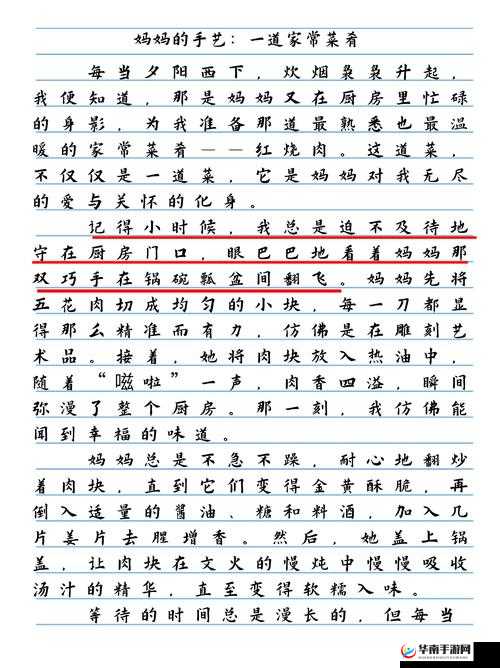 妈妈的手艺：一道家常菜肴
每当夕阳西下，炊烟袅袅升起，
我便知道，那是妈妈又在厨房里忙碌
的身影，为我准备那道最熟悉也最温
暖的家常菜肴——红烧肉。这道菜，
不仅仅是一道菜，它是妈妈对我无尽
的爱与关怀的化身。
记得小时候，我总是迫不及待地
守在厨房门口，眼巴巴地看着妈妈那
双巧手在锅碗瓢盆间翻飞。妈妈先将
五花肉切成均匀的小块，每一刀都显
得那么精准而有力，仿佛是在雕刻艺
术品。接着，她将肉块放入热油中，
随着“嗞啦”一声，肉香四溢，瞬间
弥漫了整个厨房。那一刻，我仿佛能
闻到幸福的味道。
妈妈总是不急不躁，耐心地翻炒
着肉块，直到它们变得金黄酥脆，再
倒入适量的酱油、糖和料酒，加入几
片姜片去腥增香。然后，她盖上锅
盖，让肉块在文火的慢炖中慢慢吸收
汤汁的精华，直至变得软糯入味。
等待的时间总是漫长的，但每当
华南手游网